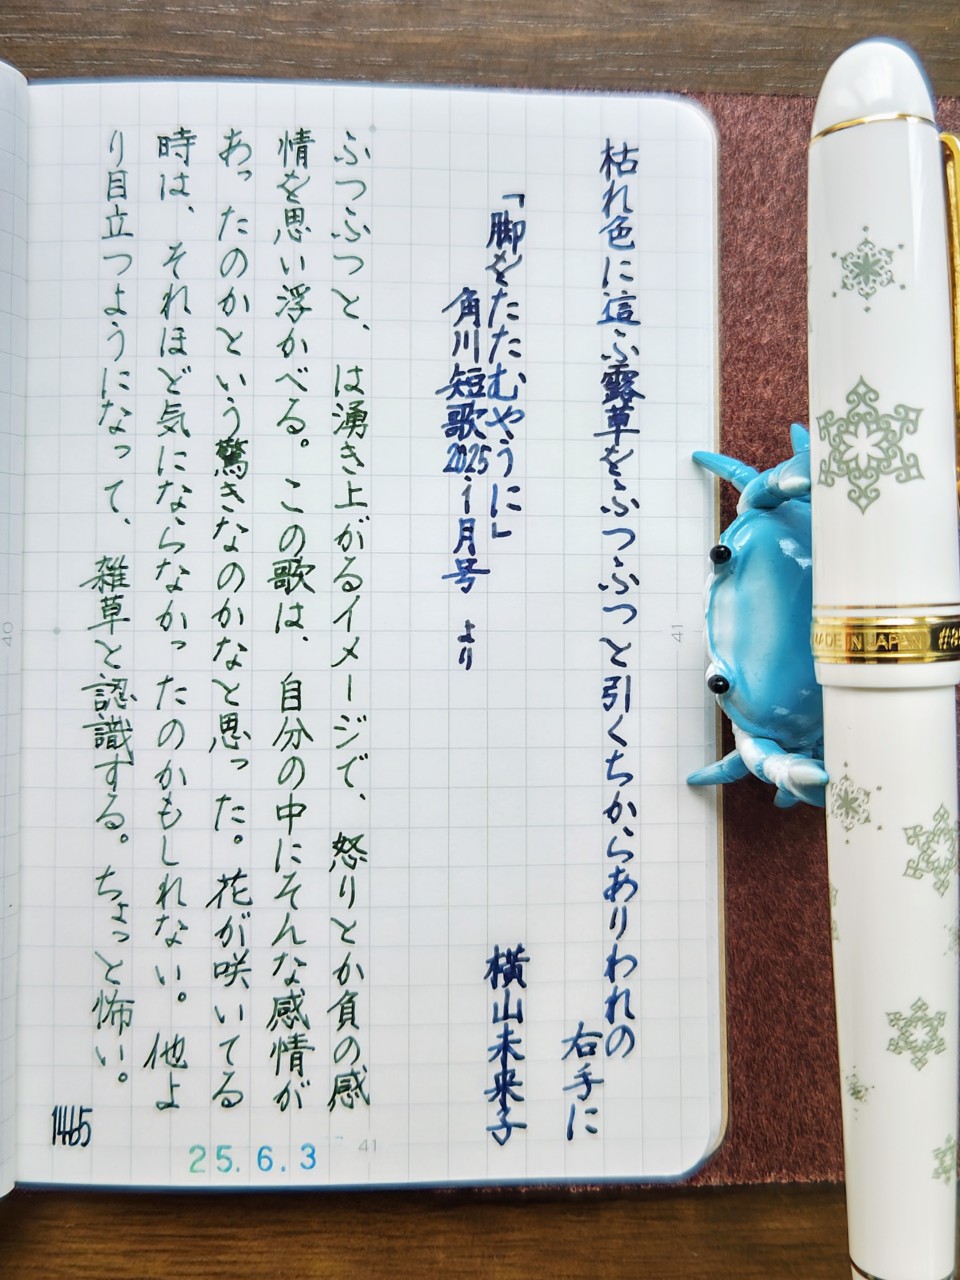 枯れ色に這ふ露草をふつふつと引くちからありわれの
右手に
「脚をたたむやうに」
角川短歌2025.1月号 より
横山未来子
ふつふつと、は湧き上がるイメージで、怒りとか負の感
情を思い浮かべる。この歌は、自分の中にそんな感情が
あったのかという驚きなのかなと思った。花が咲いてる
時は、それほど気にならなかったのかもしれない。他よ
り目立つようになって、雑草と認識する。ちょっと怖い。
1465
25.6.3
41
41
40
MADE IN JAPAN